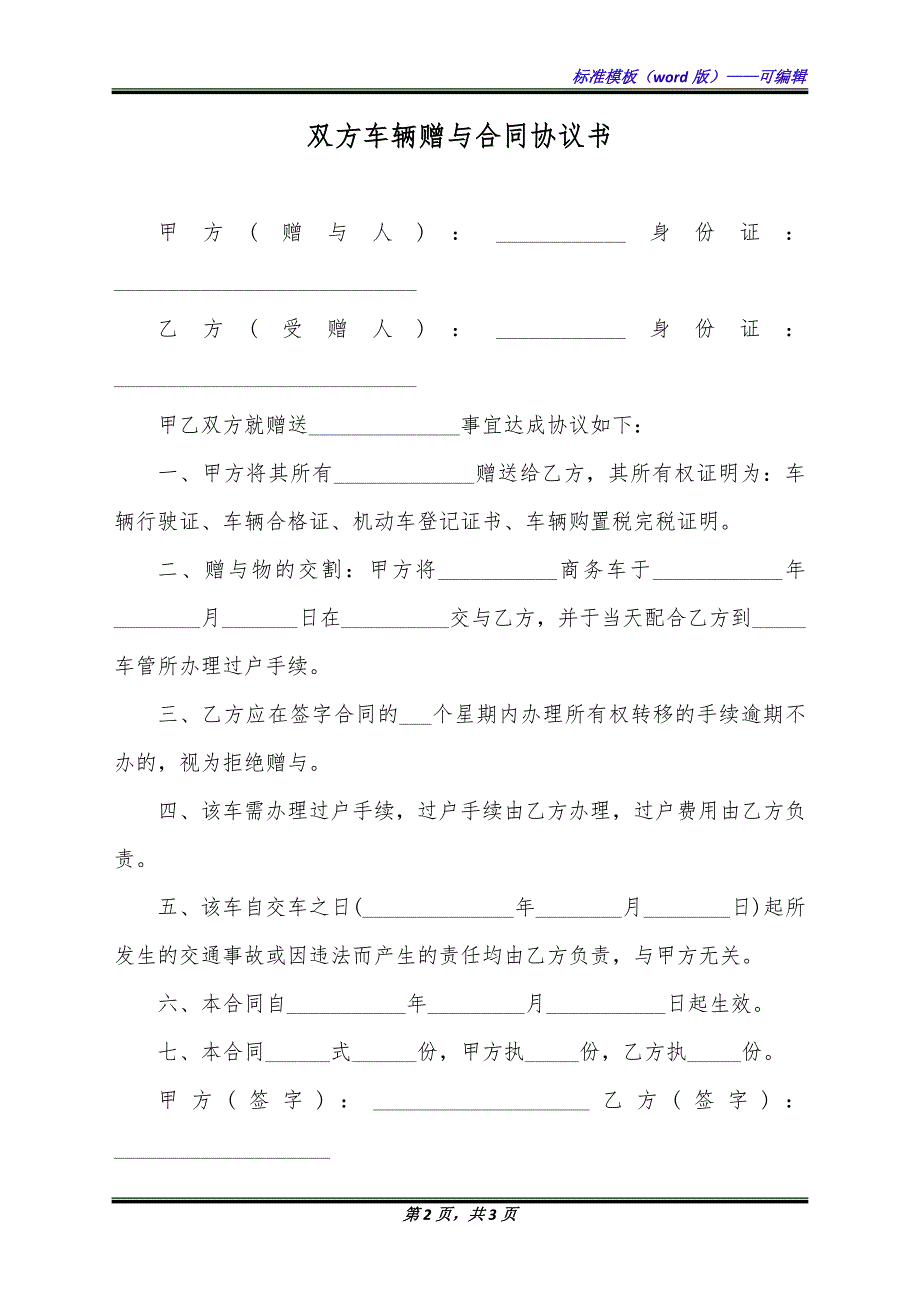 标准模板（word 版）——可编辑
双方车辆赠与合同协议书
甲方(赠与人)：____________身份证：
____________________________
乙方(受赠人)：____________身份证：
____________________________
甲乙双方就赠送______________事宜达成协议如下：
一、甲方将其所有_____________赠送给乙方，其所有权证明为：车
辆行驶证、车辆合格证、机动车登记证书、车辆购置税完税证明。
二、赠与物的交割：甲方将___________商务车于____________年
________月_______日在__________交与乙方，并于当天配合乙方到_____
车管所办理过户手续。
三、乙方应在签字合同的___个星期内办理所有权转移的手续逾期不
办的，视为拒绝赠与。
四、该车需办理过户手续，过户手续由乙方办理，过户费用由乙方负
责。
五、该车自交车之日(______________年________月________日)起所
发生的交通事故或因违法而产生的责任均由乙方负责，与甲方无关。
六、本合同自___________年_________月___________日起生效。
七、本合同______式______份，甲方执_____份，乙方执_____份。
甲方(签字)：____________________乙方(签字)：
____________________
第 2 页，共 3 页